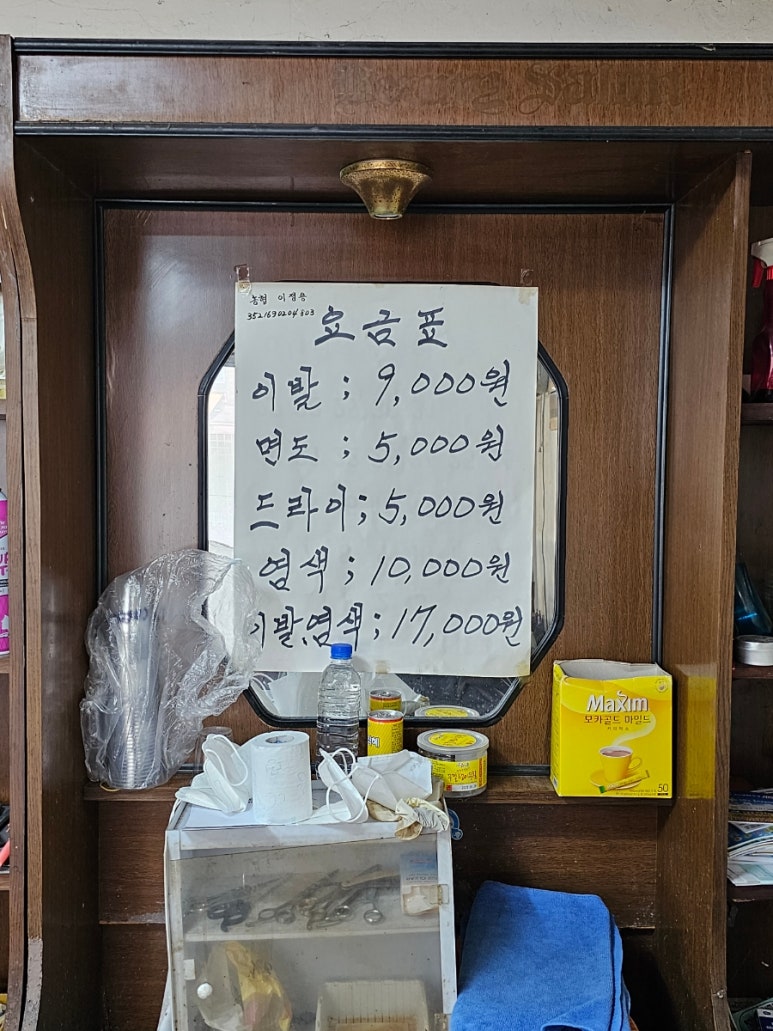 농협 이정용
3521690204803
요금표
이발 ; 9,000원
면도 ; 5,000원
드라이 ; 5,000원
염색 ; 10,000원
이발,염색 ; 17,000원
Maxim
모카골드 마일드
커피믹스
50